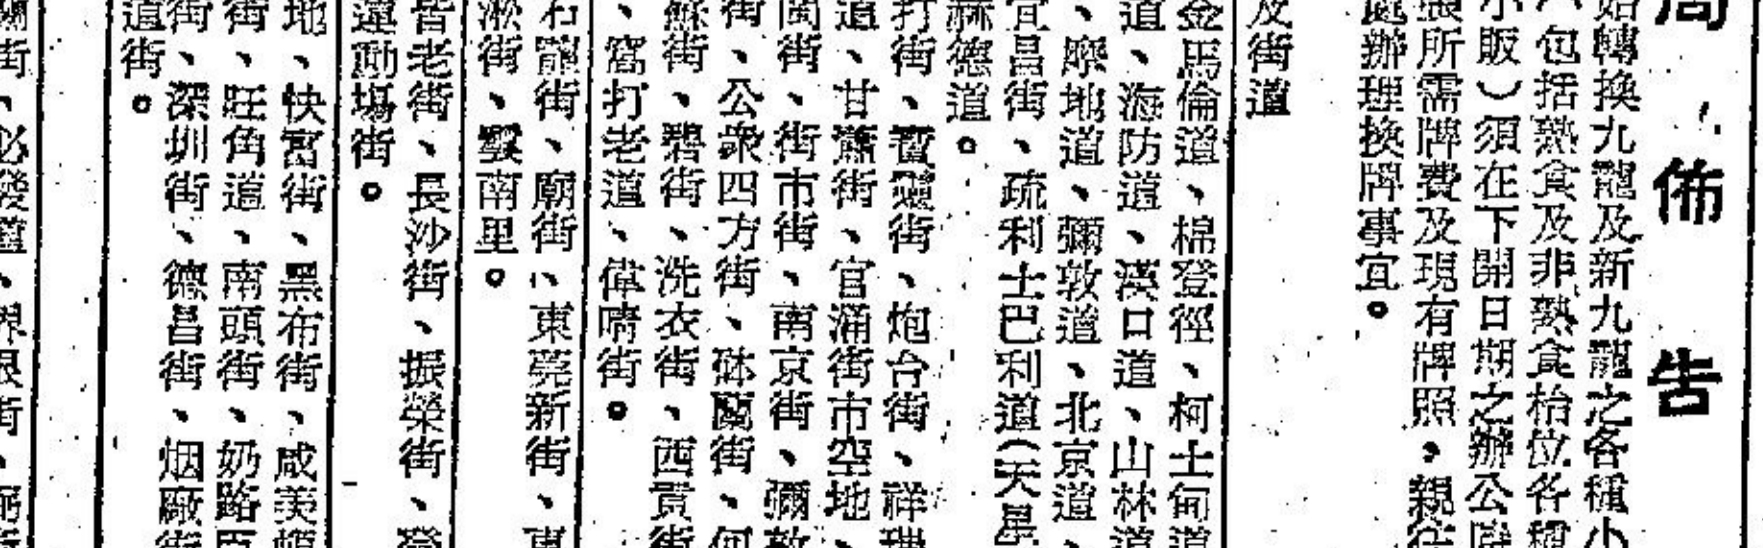 局佈告
轉換九龍及新九龍之各種小
包括熟食及非熟食枱位各種
小販）須在下開日期之辦公時
所需牌費及現有牌照，親往
處辦理換牌事宜。
及街道
金馬倫道、棉登徑、柯士甸道
道、海防道、漢口道、山林道
、摩地道、彌敦道、北京道、
宜昌街、疏利士巴利道（天星
赫德道。
打街、寶靈街、炮台街、祥
道、甘肅街、官涌街市空地、
街、街市街、南京街、彌敦
街、公衆四方街、砵蘭街、何
蘇街、碧街、洗衣街、西貢街
、窩打老道、偉晴街。
石龍街、廟街、東莞新街、東
淞街、南里。
皆老街、長沙街、振榮街、登
運動場街。
地、快富街、黑布街、咸美頓
街、旺角道、南頭街、奶路臣
街、深圳街、德昌街、烟廠街
道街。
蘭街、必發道、界限街、弼街